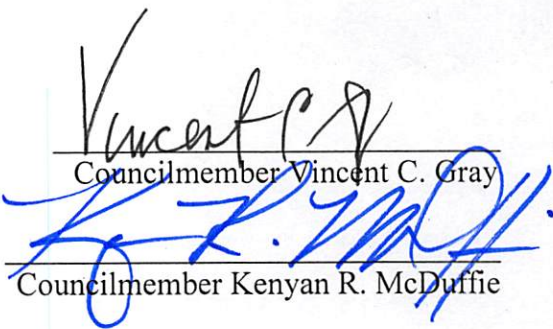 Vincent C. Gray
Councilmember Vincent C. Gray
Kenyan R. McDuffie
Councilmember Kenyan R. McDuffie